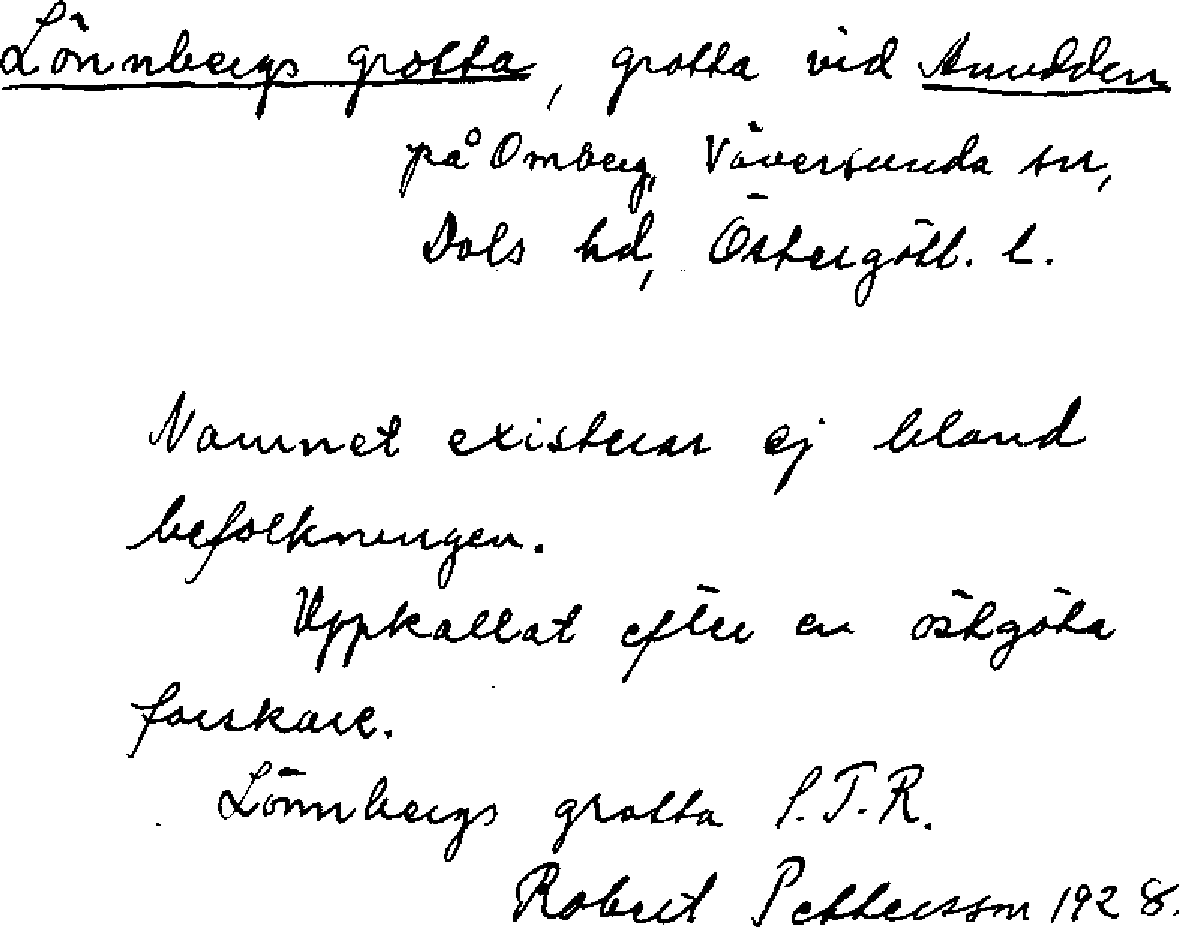 Lönnbergs grotta, grotta vid Anudden
på Omberg, Väversunda sn,
Dals hd, Östergötl. l.
Namnet existerar ej bland
befolkningen.
Uppkallat efter en östgöta
forskare.
Lönnbergs grotta S.T.R.
Robert Pettersson 1928.